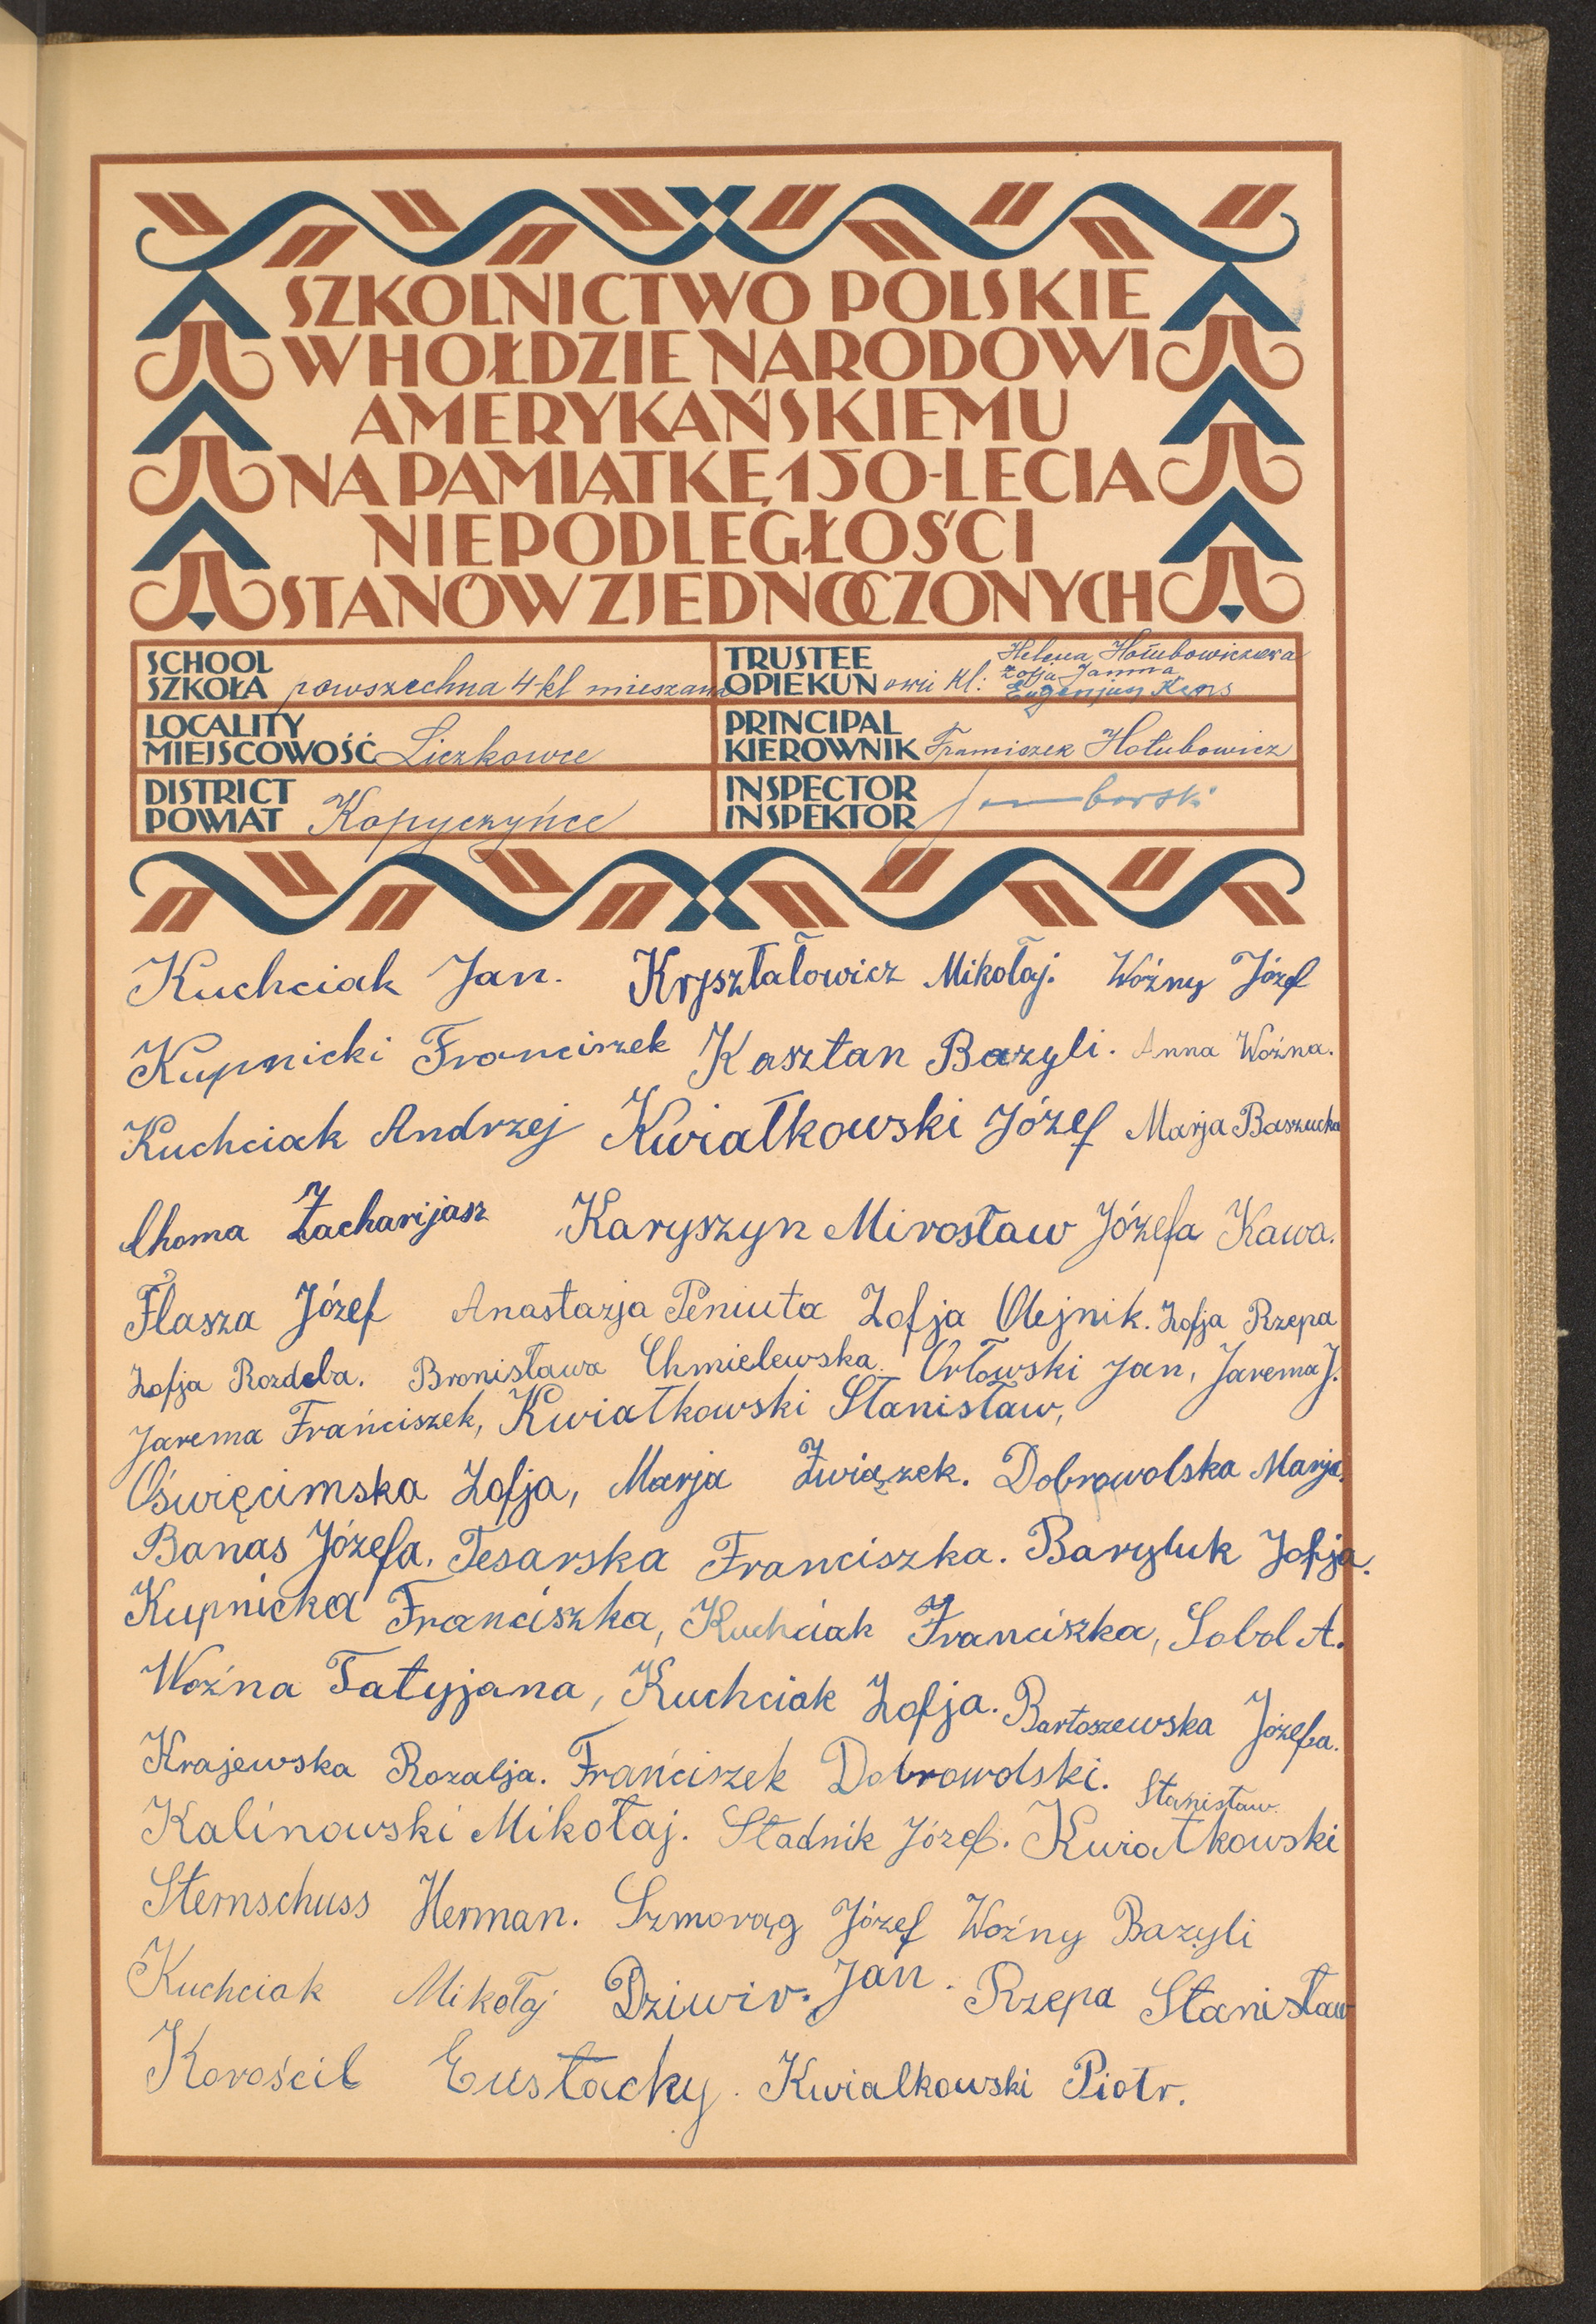 SZKOLNICTWO POLSKIE
W HOŁDZIE NARODOWI
AMERYKAŃSKIEMU
NA PAMIĄTKĘ 150-LECIA
NIEPODLEGŁOŚCI
STANÓW ZJEDNOCZONYCH
SCHOOL
SZKOŁA powszechna 4-kl mieszana
TRUSTEE
OPIEKUN owie kl: Helena Hołubowiczowa
Zofja Janina
Eugenjusz
LOCALITY
MIEJSCOWOŚĆ Liczkowce
PRINCIPAL
KIEROWNIK Franciszek Hołubowicz
DISTRICT
POWIAT Kopyczyńce
INSPECTOR
INSPEKTOR
Kuchciak Jan. Kryształowicz Mikołaj. Woźny Józef
Kupnicki Franciszek Kasztan Bazyli. Anna Woźna.
Kuchciak Andrzej Kwiatkowski Józef Marja Baszucka
Choma Zacharijasz Karyszyn Mirosław Józefa Kawa.
Flasza Józef Anastazja Peniuta Zofja Olejnik. Zofja Rzepa
Zofja Rozdeba. Bronisława Chmielewska. Orłowski Jan, Jarema J.
Jarema Franciszek, Kwiatkowski Stanisław,
Oświęcimska Zofja, Marja Związek. Dobrowolska Marja.
Banas Józefa. Tesarska Franciszka. Baryluk Zofja.
Kupnicka Franciszka, Kuchciak Franciszka, Sobol A.
Woźna Tatyjana, Kuchciak Zofja. Bartoszewska Józefa.
Krajewska Rozalja. Franciszek Dobrowolski. Stanisław.
Kalinowski Mikołaj. Stadnik Józef. Kwiatkowski
Sternschuss Herman. Szmorąg Józef Woźny Bazyli
Kuchciak Mikołaj Dziwir. Jan. Rzepa Stanisław
Korościl Eustacky. Kwialkowski Piotr.